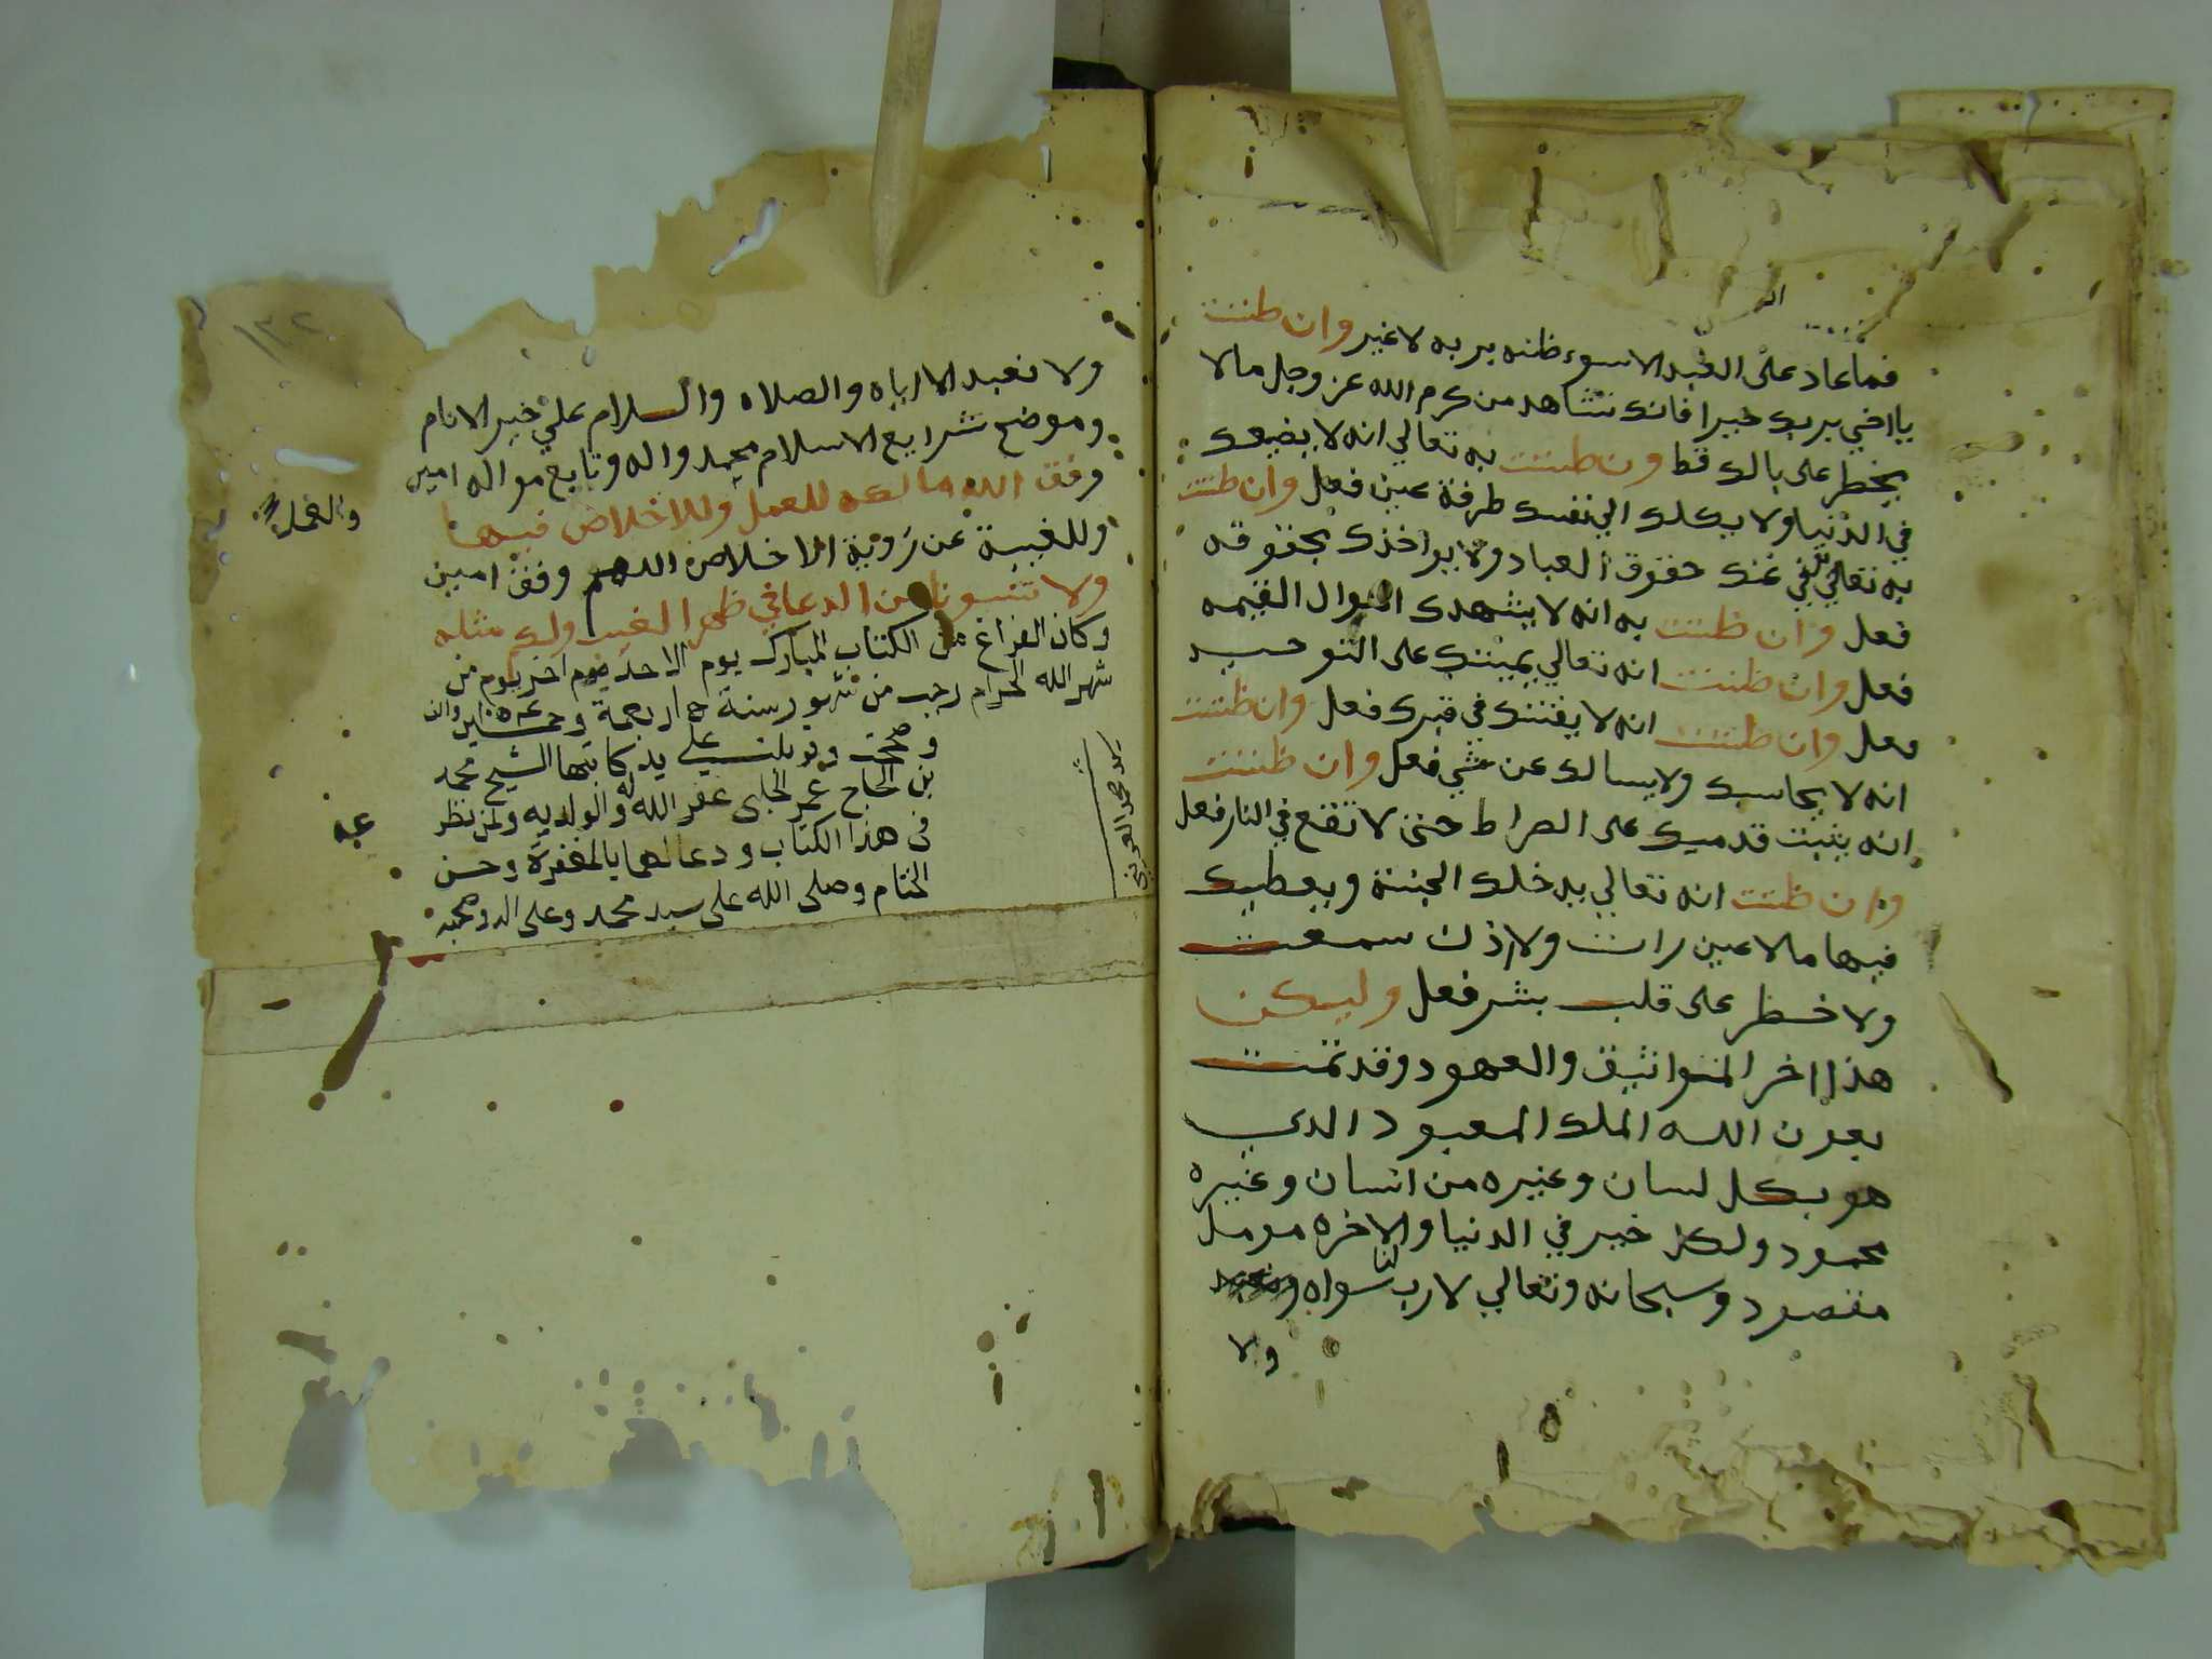 فما عاد على العبد الا سوء ظنه بربه لا غير وان ظننت
يا اخي بربك خيرا فانك تشاهد من كرم الله عز وجل مالا
يخطر على بالك قط ون ظننت به تعالي انه لا يضيعك
في الدنيا ولا يكلك الي نفسك طرفة عين فعل وان ظننت
به تعالي عنك حقوق العباد ولا يواخذك بحقوقه
فعل وان ظننت به انه لا يشهدك اهوال القيمه
فعل وان ظننت انه تعالي يميتك على التوحيد
فعل وان ظننت انه لا يفتنك في قبرك فعل وان ظننت
انه لا يحاسبك ولا يسالك عن شي فعل وان ظننت
انه يثبت قدميك على الصراط حتى لا تقع في النار فعل
وان ظننت انه تعالي يدخلك الجنة ويعطيك
فيها مالا عين رات ولا اذن سمعت
ولا خطر على قلب بشر فعل وليكن
هذا اخر المواثيق والعهود وقد تمت
بعون الله الملك المعبود الدي
هو بكل لسان وغيره من انسان وغيره
محمود ولكل خير في الدنيا والاخره مومل
مقصود وسبحانه وتعالي لا رب لنا سواه
ولا
ولا نعبد الا اياه والصلاه والسلام علي خير الانام
وموضح شرايع الاسلام محمد واله وتابع مواله امين
وفق الله مالكه للعمل وللاخلاص فيها
وللغيبة عن رؤية الاخلاص اللهم وفق امين
ولا تنسونا من الدعا في ظهر الغيب ولك مثله
وكان الفراغ من الكتاب المبارك يوم الاحد اخر يوم من
شهر الله الحرام رجب من شهور سنة
وصححت وقوبلت علي يد كاتبها الشيخ محمد
بن الحاج عمر غفر الله له والوالديه ولمن نظر
في هذا الكتاب ودعا لهما بالمغفرة وحسن
الختام وصلى الله على سيد محمد وعلى اله وصحبه
١٣٢